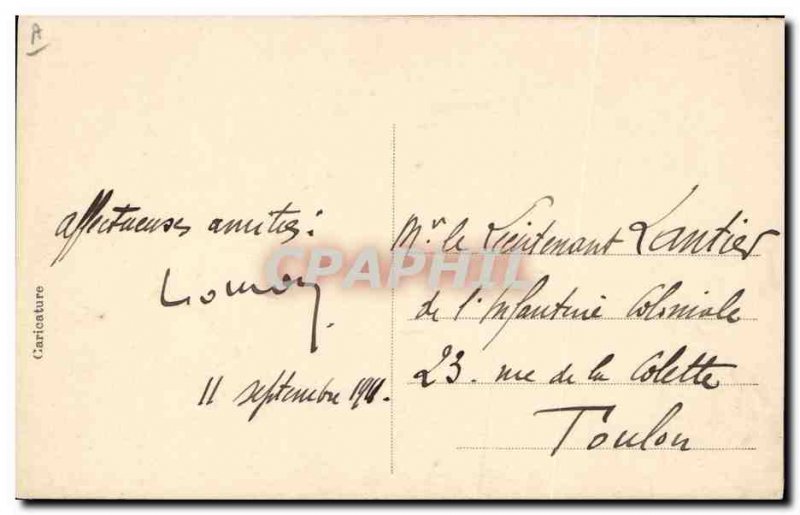 A
affectueuses amitiés:
11 septembre 1911.
Mr le Lieutenant Lantier
de l'Infanterie Coloniale
23. rue de la Colette
Toulon
Caricature
CPAPHIL